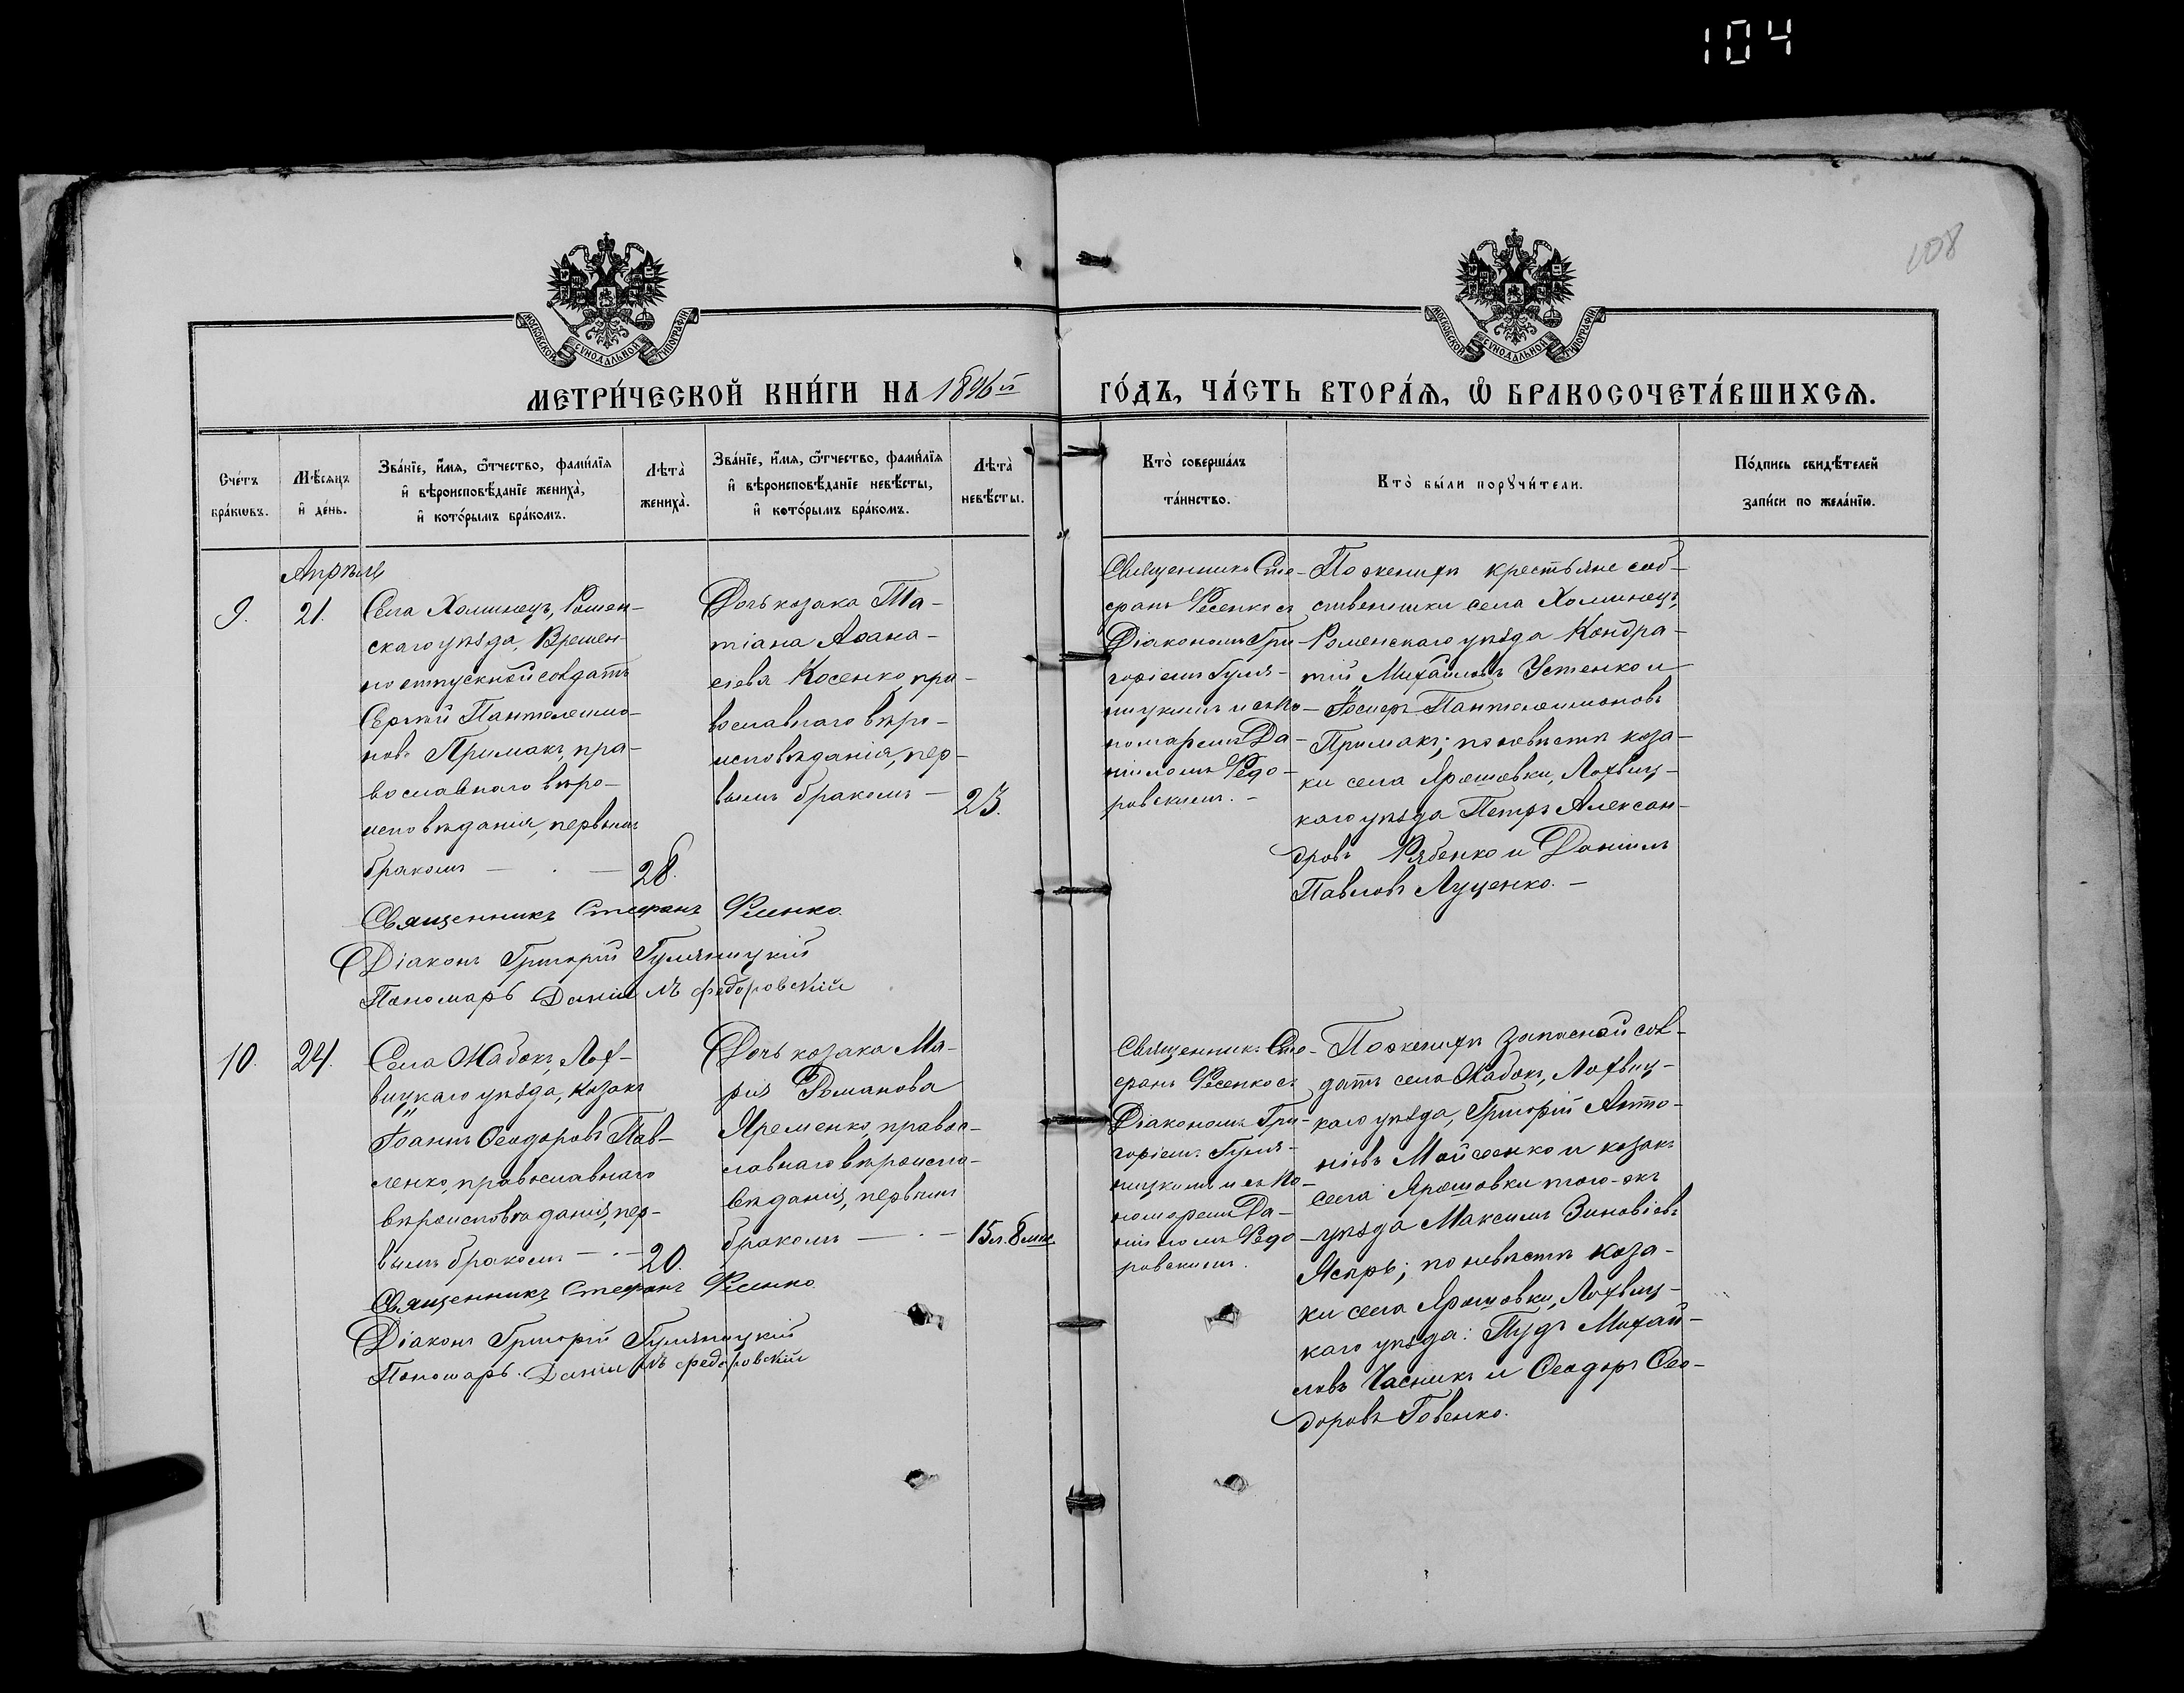 104
108
МОСКОВСКОЙ СУНОДАЛЬНОЙ ТИПОГРАФІИ
МОСКОВСКОЙ СУНОДАЛЬНОЙ ТИПОГРАФІИ
МЕТРИ́ЧЕСКОЙ КНИ́ГИ НА 1896й ГО́ДЪ, ЧА́СТЬ ВТОРА́Ѧ, Ѡ БРАКОСОЧЕТА́ВШИХСѦ.
Сче́тъ
бра́кѡвъ.
Мѣ́сяцъ
и де́нь.
Зва́нїе, и́мѧ, ѻ́тчество, фами́лїѧ
и вѣроисповѣ́данїе жениха̀,
и кото́рымъ бра́комъ.
Лѣта̀
жениха̀.
Зва́нїе, и́мѧ, ѻ́тчество, фами́лїѧ
и вѣроисповѣ́данїе невѣ́сты,
и кото́рымъ бра́комъ.
Лѣта̀
невѣ́сты.
Кто̀ соверша́лъ
та́инство.
Кто̀ бы́ли порꙋчи́тели.
По́дпись свидѣ́телей
за́писи по жела́нїю.
Апрѣль
9.
21.
Села Хоминецъ, Ромен-
скаго уѣзда, Времен-
но отпускной солдатъ
Сергій Пантелеимо-
новъ Примакъ, пра-
вославнаго вѣро-
исповѣданія, первымъ
бракомъ —
28.
Дочь козака Та-
тіана Аѳана-
сіева Косенко, пра-
вославнаго вѣро-
исповѣданія, пер-
вымъ бракомъ —
23.
Священникъ Сте-
фанъ Фесенко съ
Діакономъ Гри-
горіемъ Гуля-
ницкимъ и съ По-
номаремъ Да-
ніиломъ Федо-
ровскимъ. –
По женихѣ крестьяне соб-
ственники села Хоминецъ,
Роменскаго уѣзда Кондра-
тій Михайловъ Устенко и
Іосифъ Пантелеимоновъ
Примакъ; по невѣстѣ коза-
ки села Ярошовки, Лохвиц-
каго уѣзда Петръ Алексан-
дровъ Рябенко и Даніилъ
Павловъ Луценко. –
Священникъ Стефанъ Фесенко
Діаконъ Григорій Гуляницкій
Пономарь Даніилъ Федоровскій
10.
24.
Села Жабокъ, Лох-
вицкаго уѣзда, козакъ
Іоаннъ Ѳеодоровъ Пав-
ленко, православнаго
вѣроисповѣданія, пер-
вымъ бракомъ —
20.
Дочь козака Ма-
рія Романова
Яременко, правос-
лавнаго вѣроиспо-
вѣданія, первымъ
бракомъ —
15 л. 8 мѣс.
Священникъ Сте-
фанъ Фесенко съ
Діакономъ Гри-
горіемъ Гуля-
ницкимъ и съ По-
номаремъ Да-
ніиломъ Федо-
ровскимъ.
По женихѣ запасной сол-
датъ села Жабокъ, Лохвиц-
каго уѣзда, Григорій Анто-
ніевъ Мойсеенко и козакъ
села Ярошовки того-же
уѣзда Максимъ Зиновіевъ
по невѣстѣ коза-
ки села Ярошовки, Лохвиц-
каго уѣзда: Пудъ Михай-
ловъ Часникъ и Ѳеодоръ Ѳео-
доровъ Говенко.
Священникъ Стефанъ Фесенко
Діаконъ Григорій Гуляницкій
Пономарь Даніилъ Федоровскій